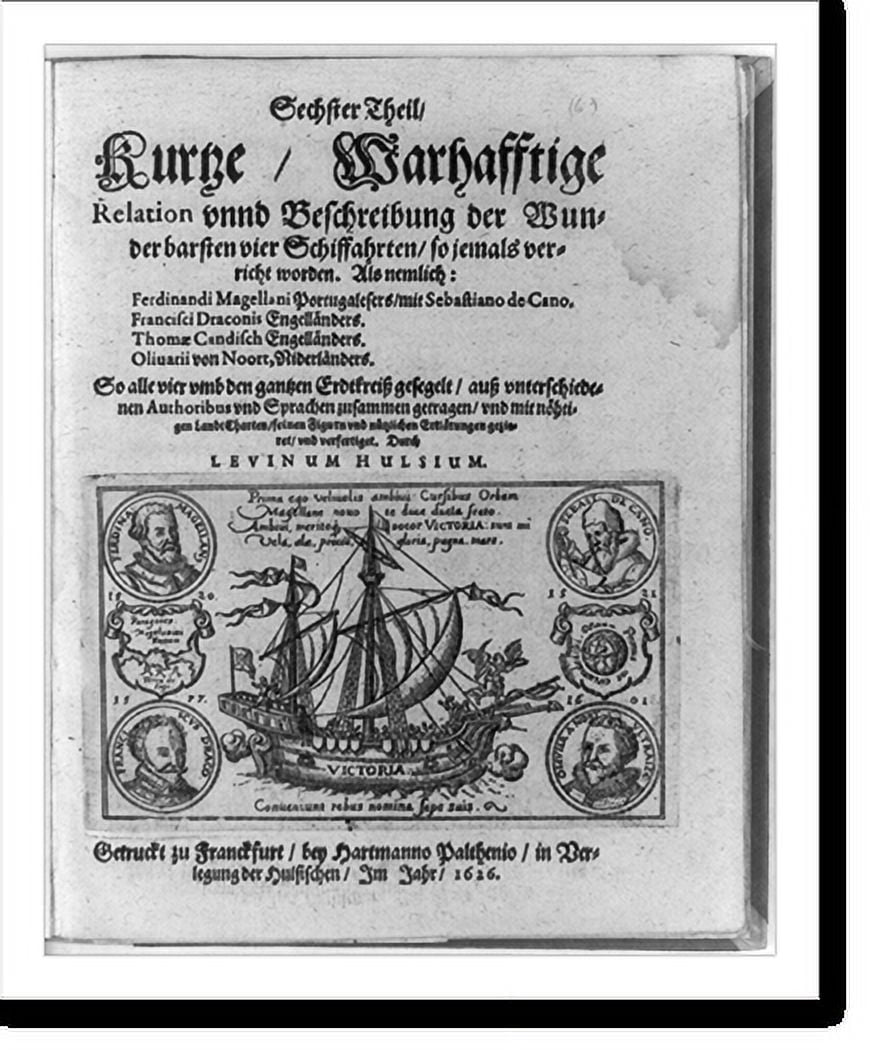 (6)
Sechster Theil/
Kurtze / Warhafftige
Relation vnnd Beschreibung der Wun-
der barsten vier Schiffahrten/ so jemals ver-
richt worden. Als nemlich:
Ferdinandi Magellani Portugalesers/mit Sebastiano de Cano.
Francisci Draconis Engelländers.
Thomæ Candisch Engelländers.
Oliuarii von Noort, Niderländers.
So alle vier vmb den gantzen Erdtkreiß gesegelt / auß vnterschiede-
nen Authoribus vnd Sprachen zusammen getragen/ vnd mit nöhti-
gen Landt Charten/ feinen Figurn vnd nützlichen Erklärungen gezie-
ret/ vnd verfertiget. Durch
LEVINUM HULSIUM.
Prima ego velivolis ambivi Cursibus Orbem
Magellane novo te duce ducta freto.
Ambivi, meritoq vocor VICTORIA: sunt mi
Vela, alæ, precium, gloria, pugna, mare.
FERDINA MAGELLANS
DE CANO.
15 20.
15 21
Magellanicum
15 77.
16 01
FRANCISCVS DRACO
VICTORIA
Conveniunt rebus nomina sæpe suis.
Getruckt zu Franckfurt / bey Hartmanno Palthenio / in Ver-
legung der Hulsischen/ Im Jahr/ 1626.